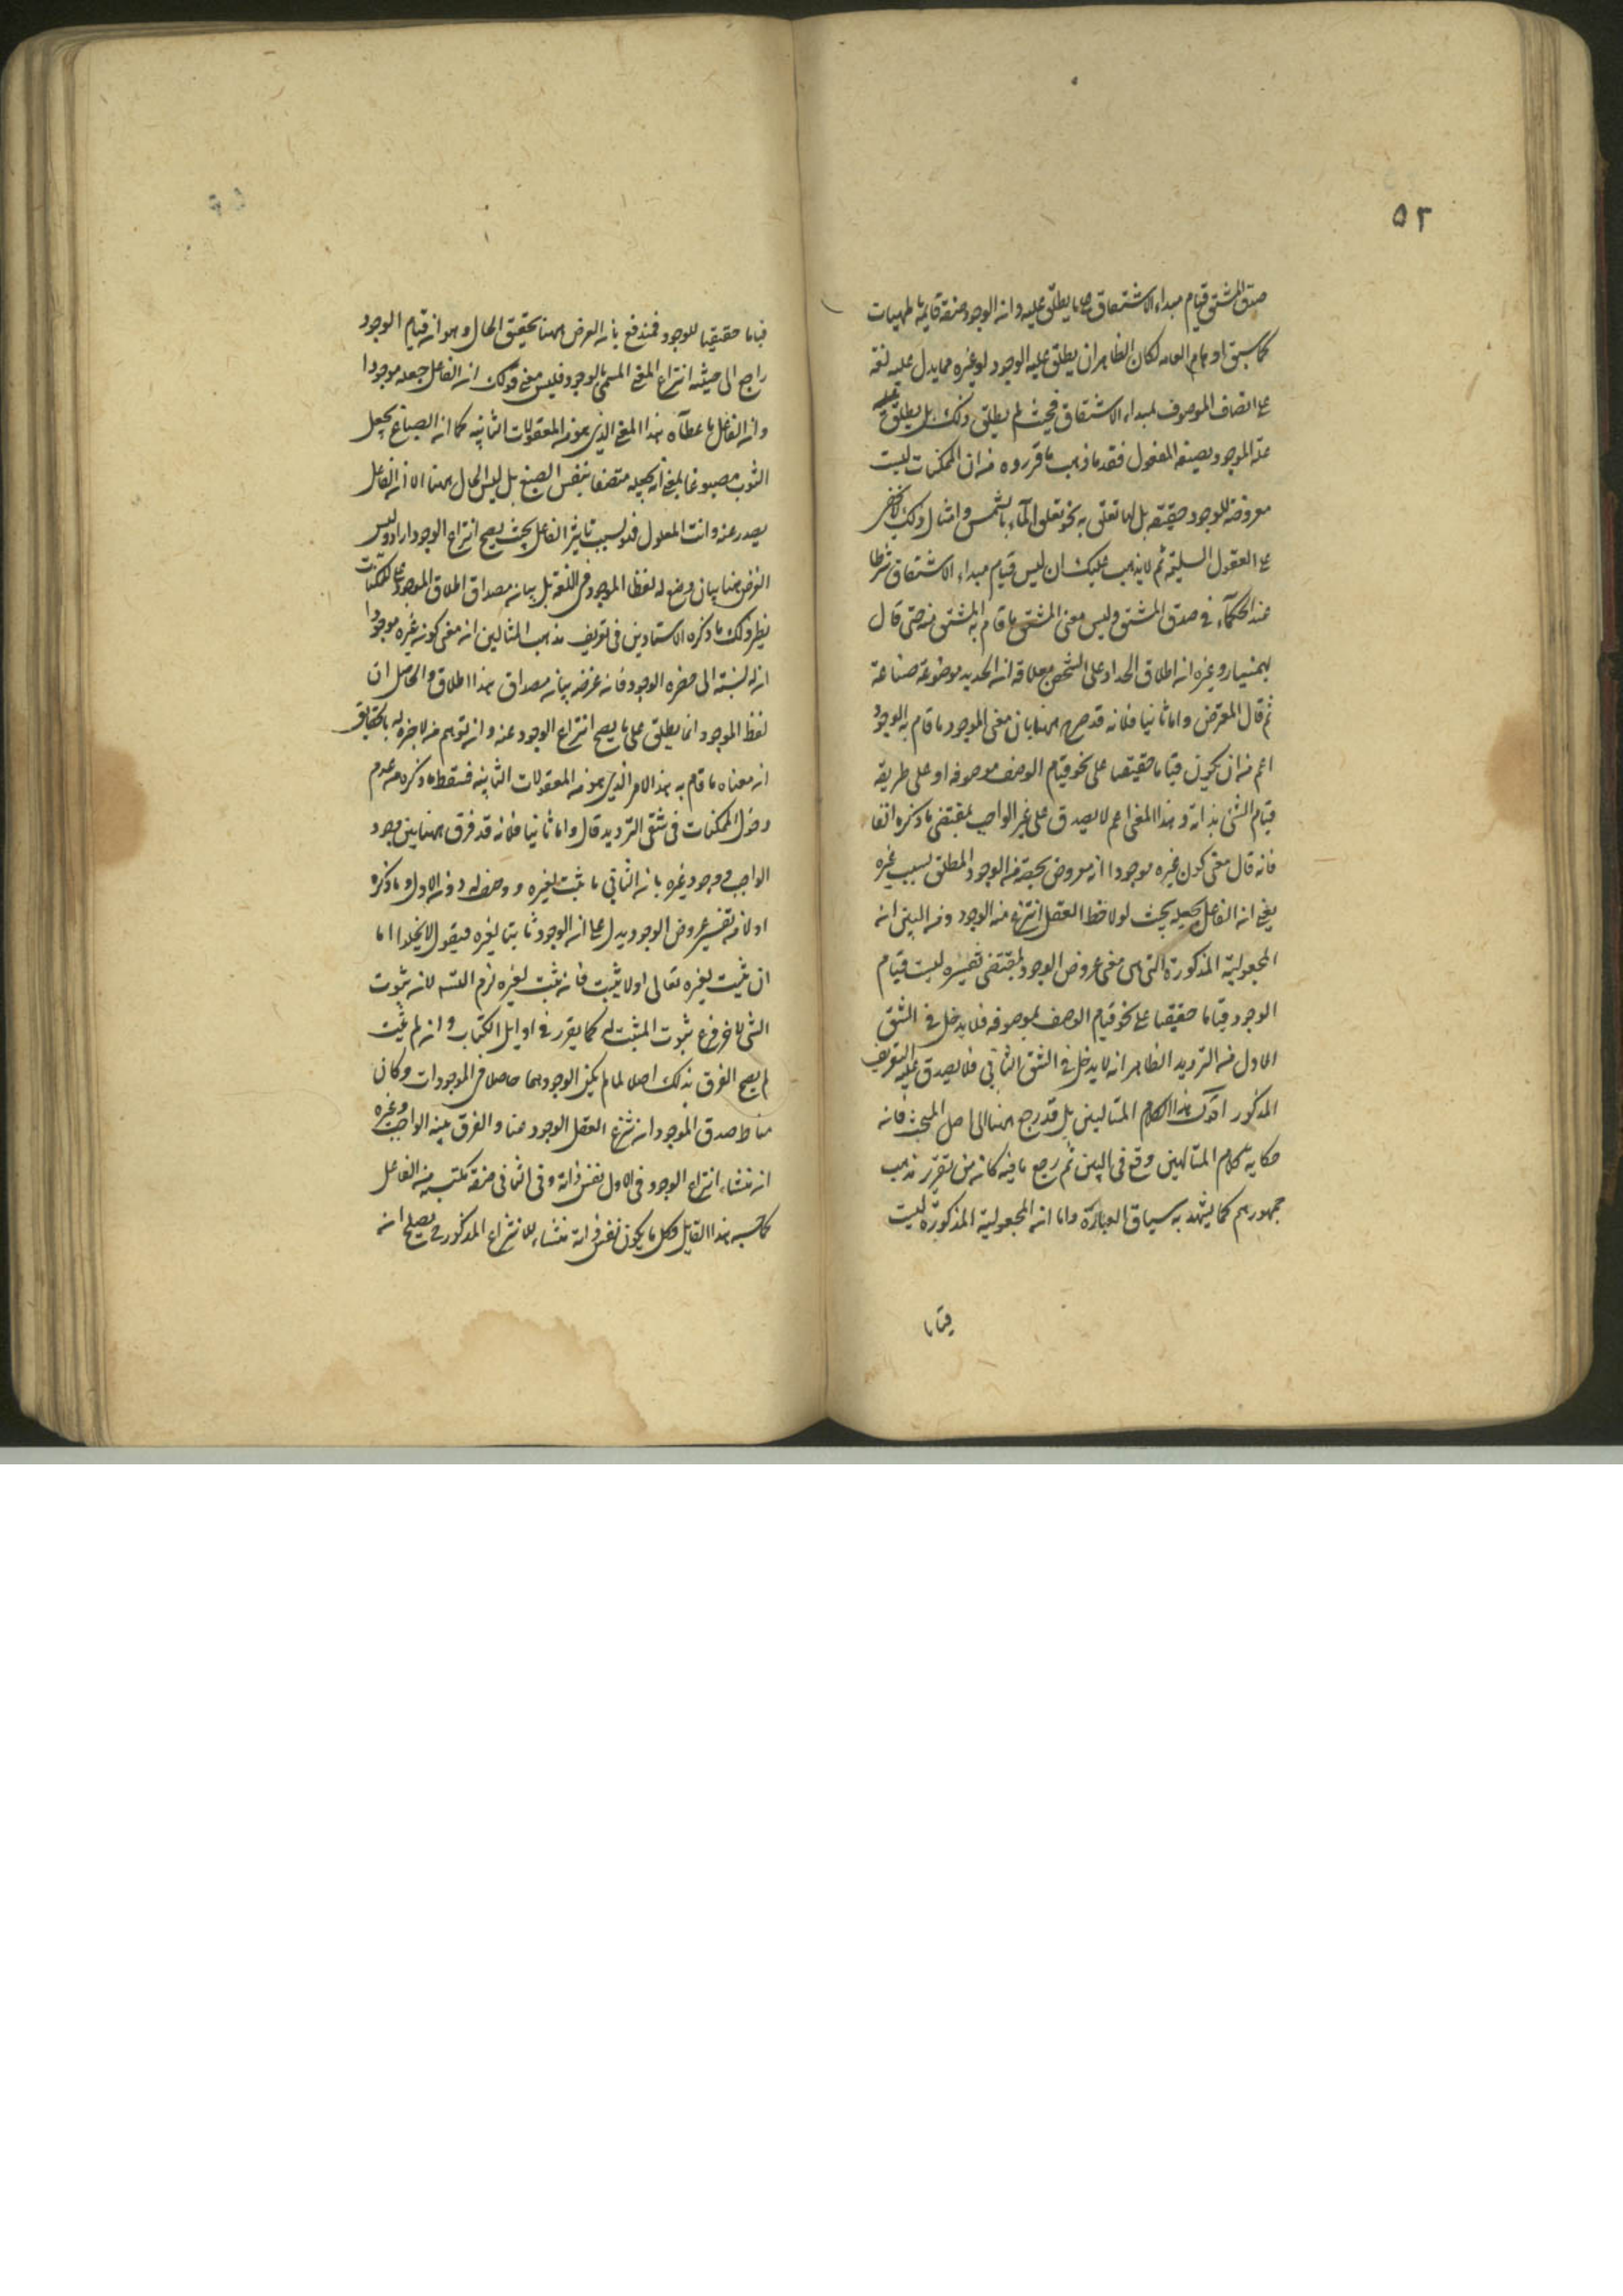 ٥٢
صدق المشتق قيام مبداء الاشتقاق بما يطلق عليه وانه الوجود صفة قايمة بالمهيات
كما سبق اوهام العامه لكان الظاهر ان يطلق عليه الوجود او غيره مما يدل عليه لغة
على اتصاف الموصوف بمبداء الاشتقاق فحيث لم يطلق ذلك بل يطلق عليه
الموجود بصيغة المفعول فقد ما ذهب ما قرروه من ان الممكنات ليست
معروضة للوجود حقيقة بل لها تعلق به نحو تعلق الماء بالشمس وامثال ذلك لا يخفى
على العقول السليمة ثم لا يذهب عليك ان ليس قيام مبداء الاشتقاق شرطا
عند الحكماء في صدق المشتق وليس معنى المشتق ما قام به المشتق منه حتى قال
بهمنيار وغيره ان اطلاق الحداد على الشخص مع علاقة ان الحديد موضوعة صناعة
ثم قال المعترض واما ثانيا فلانه قد صرح ههنا بان معنى الموجود ما قام به الوجود
اعم من ان يكون قياما حقيقيا على نحو قيام الوصف بموصوفه او على طريقة
قيام الشئ بذاته وهذا المعنى اعم لا يصدق على غير الواجب بمقتضى ما ذكره انفا
فانه قال معنى كون غيره موجودا انه معروض بحصة من الوجود المطلق بسبب غيره
بمعنى ان الفاعل يجعله بحيث لو لاحظ العقل انتزع منه الوجود ومن البين ان
المجعولية المذكورة التي هي معنى عروض الوجود بمقتضى تفسيره ليست قيام
الوجود قياما حقيقيا على نحو قيام الوصف بموصوفه فلا يدخل في الشق
الاول من الترديد الظاهر انه لا يدخل في الشق الثاني فلا يصدق عليه التعريف
المذكور اقول هذا الكلام المتالهين بل قد رجع ههنا الى اصل المبحث فانه
حكاية كلام المتالهين وقع في البين ثم رجع ما فيه كانه من تقرير مذهب
جمهورهم كما يشهد به سياق العبارة واما ان المجعولية المذكورة ليست
قياما
قياما حقيقيا للوجود فمندفع بان الغرض ههنا تحقيق الحال وهو ان قيام الوجود
راجع الى حيثية انتزاع المعنى المسمى بالوجود فليس معنى قولك ان الفاعل جعله موجودا
وان الفاعل ما عطاه هذا المعنى الذي هو من المعقولات الثانية كما ان الصباغ يجعل
الثوب مصبوغا بمعنى انه يجعله متصفا بنفس الصبغ بل ليس الحال ههنا الا ان الفاعل
يصدر عنه وانت المعلول فهو بسبب تاثير الفاعل بحيث يصح انتزاع الوجود اذ ليس
الغرض ههنا بيان وضع له لفظ الموجود في اللغة بل بيان مصداق اطلاق الموجود على الممكنات
نظير ذلك ما ذكره الاستادين في تعريف مذهب المتالهين ان معنى كونه غيره موجودا
ان له نسبة الى حضرة الوجود فانه غرضه بيان مصداق هذا اطلاق والحاصل ان
لفظ الموجود انما يطلق على ما يصح انتزاع الوجود عنه وان توهم من لا خبرة له بالحقايق
ان معناه ما قام به هذا الامر الذي هو من المعقولات الثانية فسقط ما ذكره من عدم
دخول الممكنات في شقي الترديد قال واما ثانيا فلانه قد فرق ههنا بين وجود
الواجب ووجود غيره بان الثاني ما يثبت لغيره ووصف له دون الاول وما ذكره
اولا من تفسير عروض الوجود يدل على ان الوجود ثابتا لغيره فيقول لا يخلو اما
ان يثبت لغيره تعالى او لا يثبت فان يثبت لغيره لزم التسلسل لان ثبوت
الشئ لاخر فرع ثبوت المثبت له كما يقرر في اوايل الكتاب وان لم يثبت
لم يصح الفرق بذلك اصلا لما لم يكن الوجود هما حاصلا في الموجودات وكان
مناط صدق الموجود ان ينتزع العقل الوجود عنها والفرق بينه الواجب وغيره
ان منشاء انتزاع الوجود في الاول نفس ذاته وفي الثاني صفة مكتسبه من الفاعل
كما نسبه هذا القايل وكل ما يكون نفس ذاته منشاء للانتزاع المذكور يصلح انه